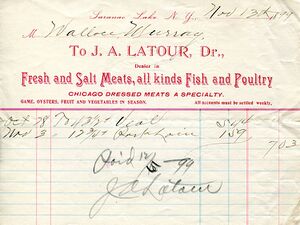 Saranac Lake, N. Y., Nov 13th 1899
M Wallace Murray
To J. A. LATOUR, Dr.,
Dealer in
Fresh and Salt Meats, all kinds Fish and Poultry
CHICAGO DRESSED MEATS A SPECIALTY.
GAME, OYSTERS, FRUIT AND VEGETABLES IN SEASON. All accounts must be settled weekly.
Oct 28 Veal 5 44
Nov 3 Pork Loin 1 59
7 03
Paid 12/ 99
J A Latour